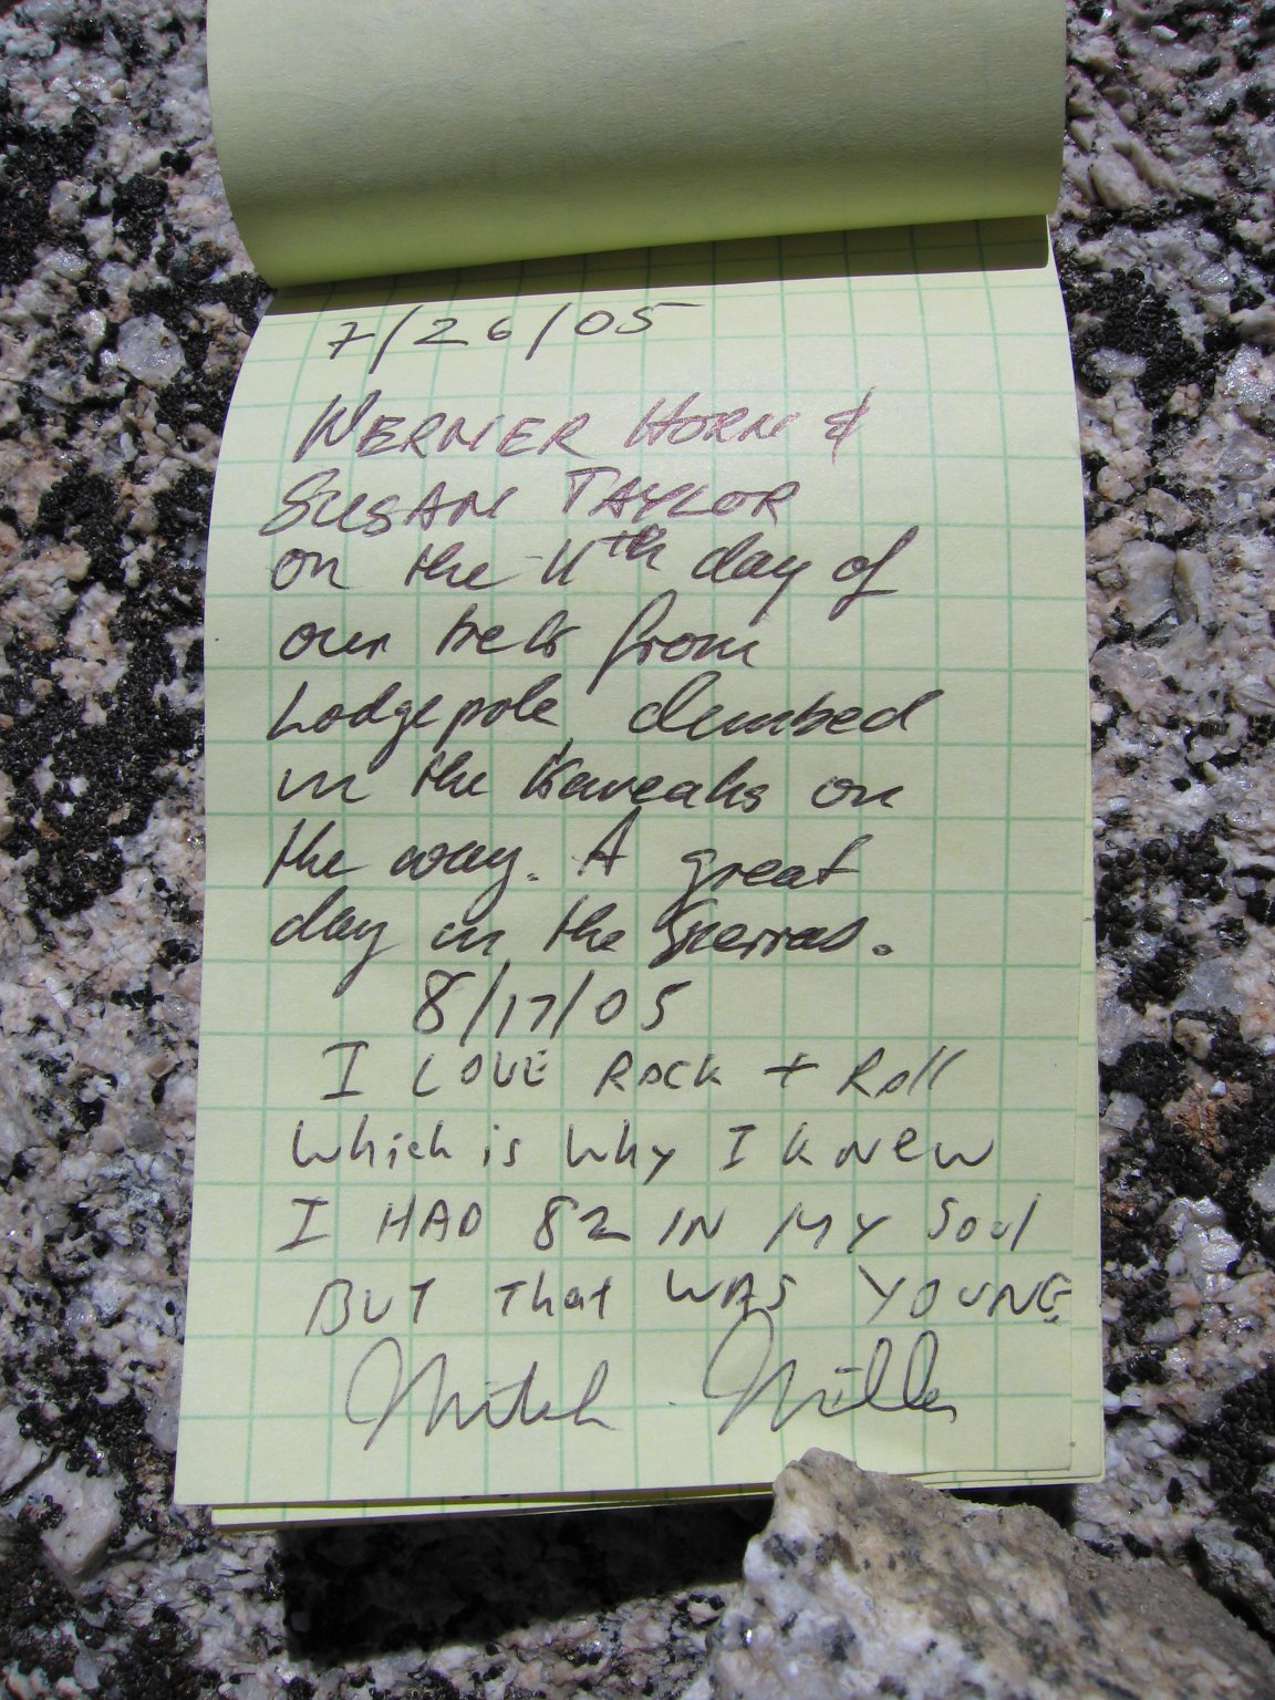 7/26/05
WERNER HORN &
SUSAN TAYLOR
on the 11th day of
our trek from
Lodgepole, climbed
in the Kaweahs on
the way. A great
day in the Sierras.
8/17/05
I LOVE ROCK + Roll
Which is Why I KNEW
I HAD 82 IN MY SOUl
BUT That WAS YOUNG
Mitch Miller